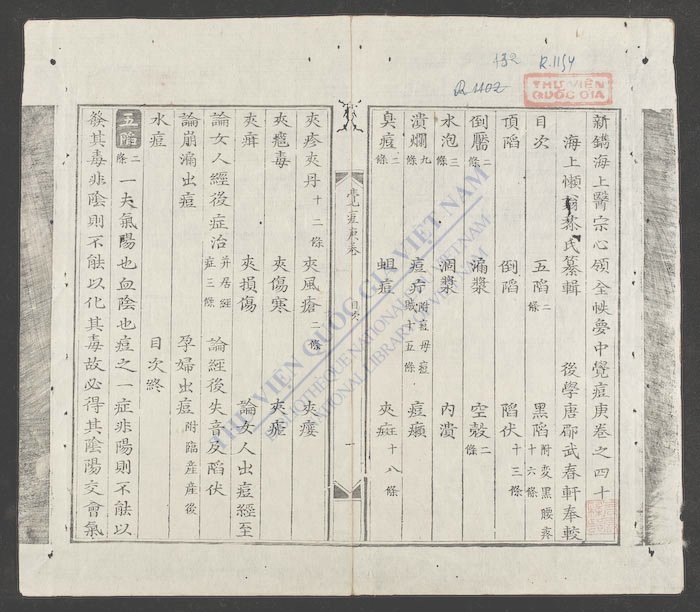 132 R.1154
R 1102
THƯ VIỆN
QUỐC GIA
新鐫海上醫宗心領全帙夢中覺痘庚卷之四十
海上懶翁黎氏纂輯 後學唐郿武春軒奉較
目次 五陷二條 黑陷附変黒腰疼十六條
頂陷 倒陷 陷伏十三條
倒靨二條 漏漿 空殼二條
水泡三條 涸漿 內潰
潰爛九條 痘疔附痘母痘賊十五條 痘癩
臭痘二條 蛆痘 夾痘十八條
覺痘庚卷 目次 一
夾疹夾丹十二條 夾風瘡二條 夾癭
夾瘟毒 夾傷寒 夾瘧
夾痳 夾損傷 論女人出痘經至
論女人經後症治并居經症三條 論經後失音及陷伏
論崩漏出痘 孕婦出痘附臨産産後
水痘 目次終
五陷二條 一夫氣陽也血陰也痘之一症非陽則不能以
發其毒非陰則不能以化其毒故必得其陰陽交會氣
THƯ VIỆN QUỐC GIA VIỆT NAM
BIBLIOTHÈQUE NATIONALE DU VIETNAM
NATIONAL LIBRARY OF VIETNAM